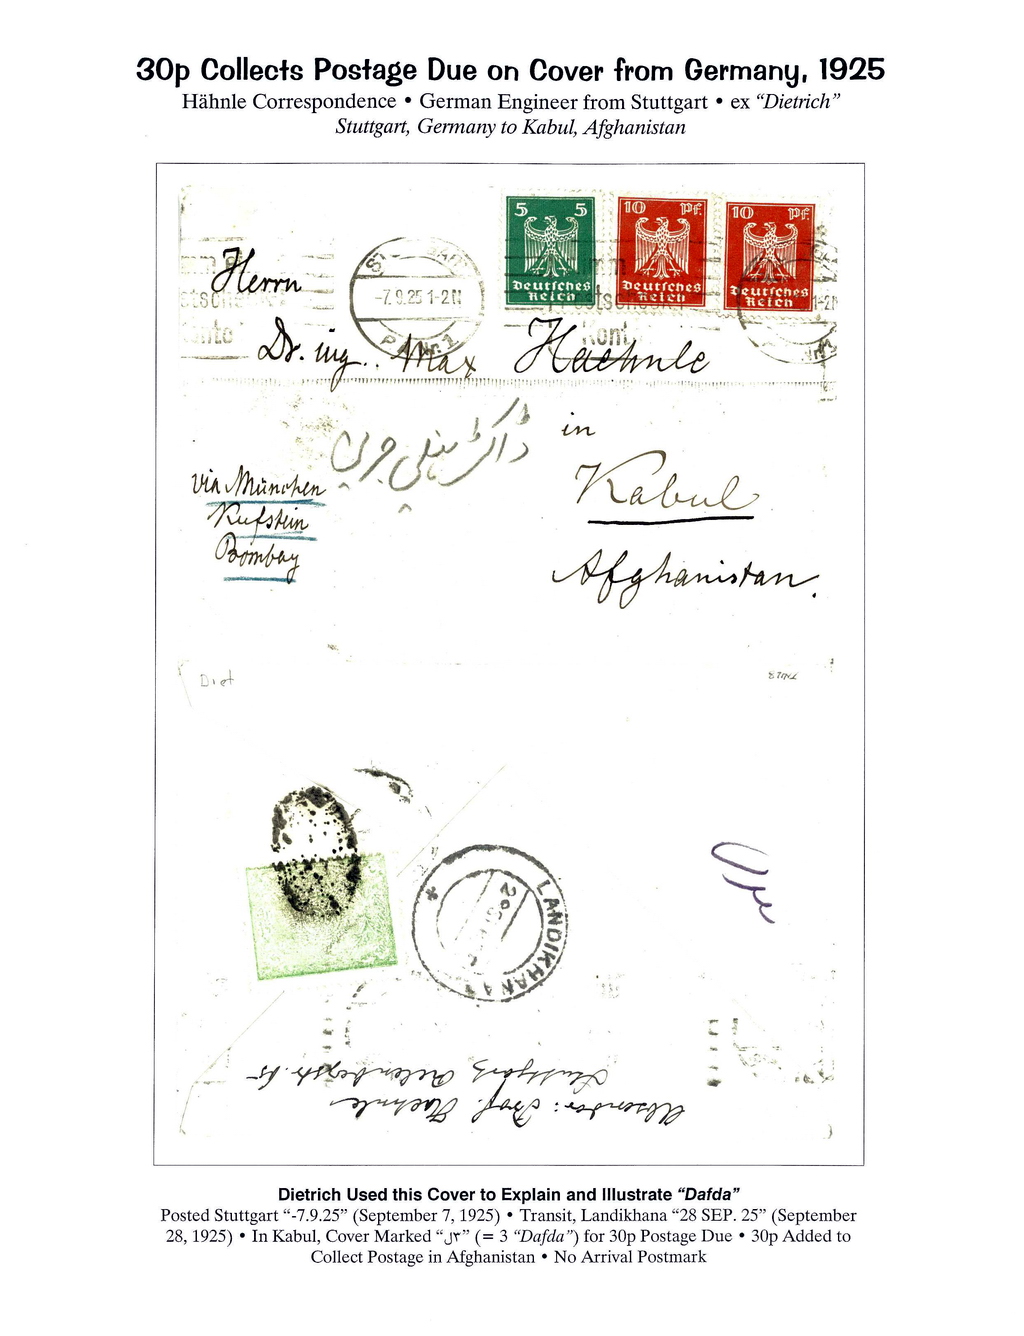 30p Collects Postage Due on Cover from Germany, 1925
Hähnle Correspondence • German Engineer from Stuttgart • ex “Dietrich”
Stuttgart, Germany to Kabul, Afghanistan
5 5
Deutsches
Reich
10 Pf.
Deutsches
Reich
10 Pf.
Deutsches
Reich
-7.9.25 1-2N
Herrn
Dr. ing. Max Haehnle
in
Kabul
Afghanistan.
via München
Kufstein
Bombay
Diet
LANDIKHANA
Absender: Prof. Haehnle
Stuttgart
Dietrich Used this Cover to Explain and Illustrate “Dafda”
Posted Stuttgart “-7.9.25” (September 7, 1925) • Transit, Landikhana “28 SEP. 25” (September
28, 1925) • In Kabul, Cover Marked “٣ل” (= 3 “Dafda”) for 30p Postage Due • 30p Added to
Collect Postage in Afghanistan • No Arrival Postmark